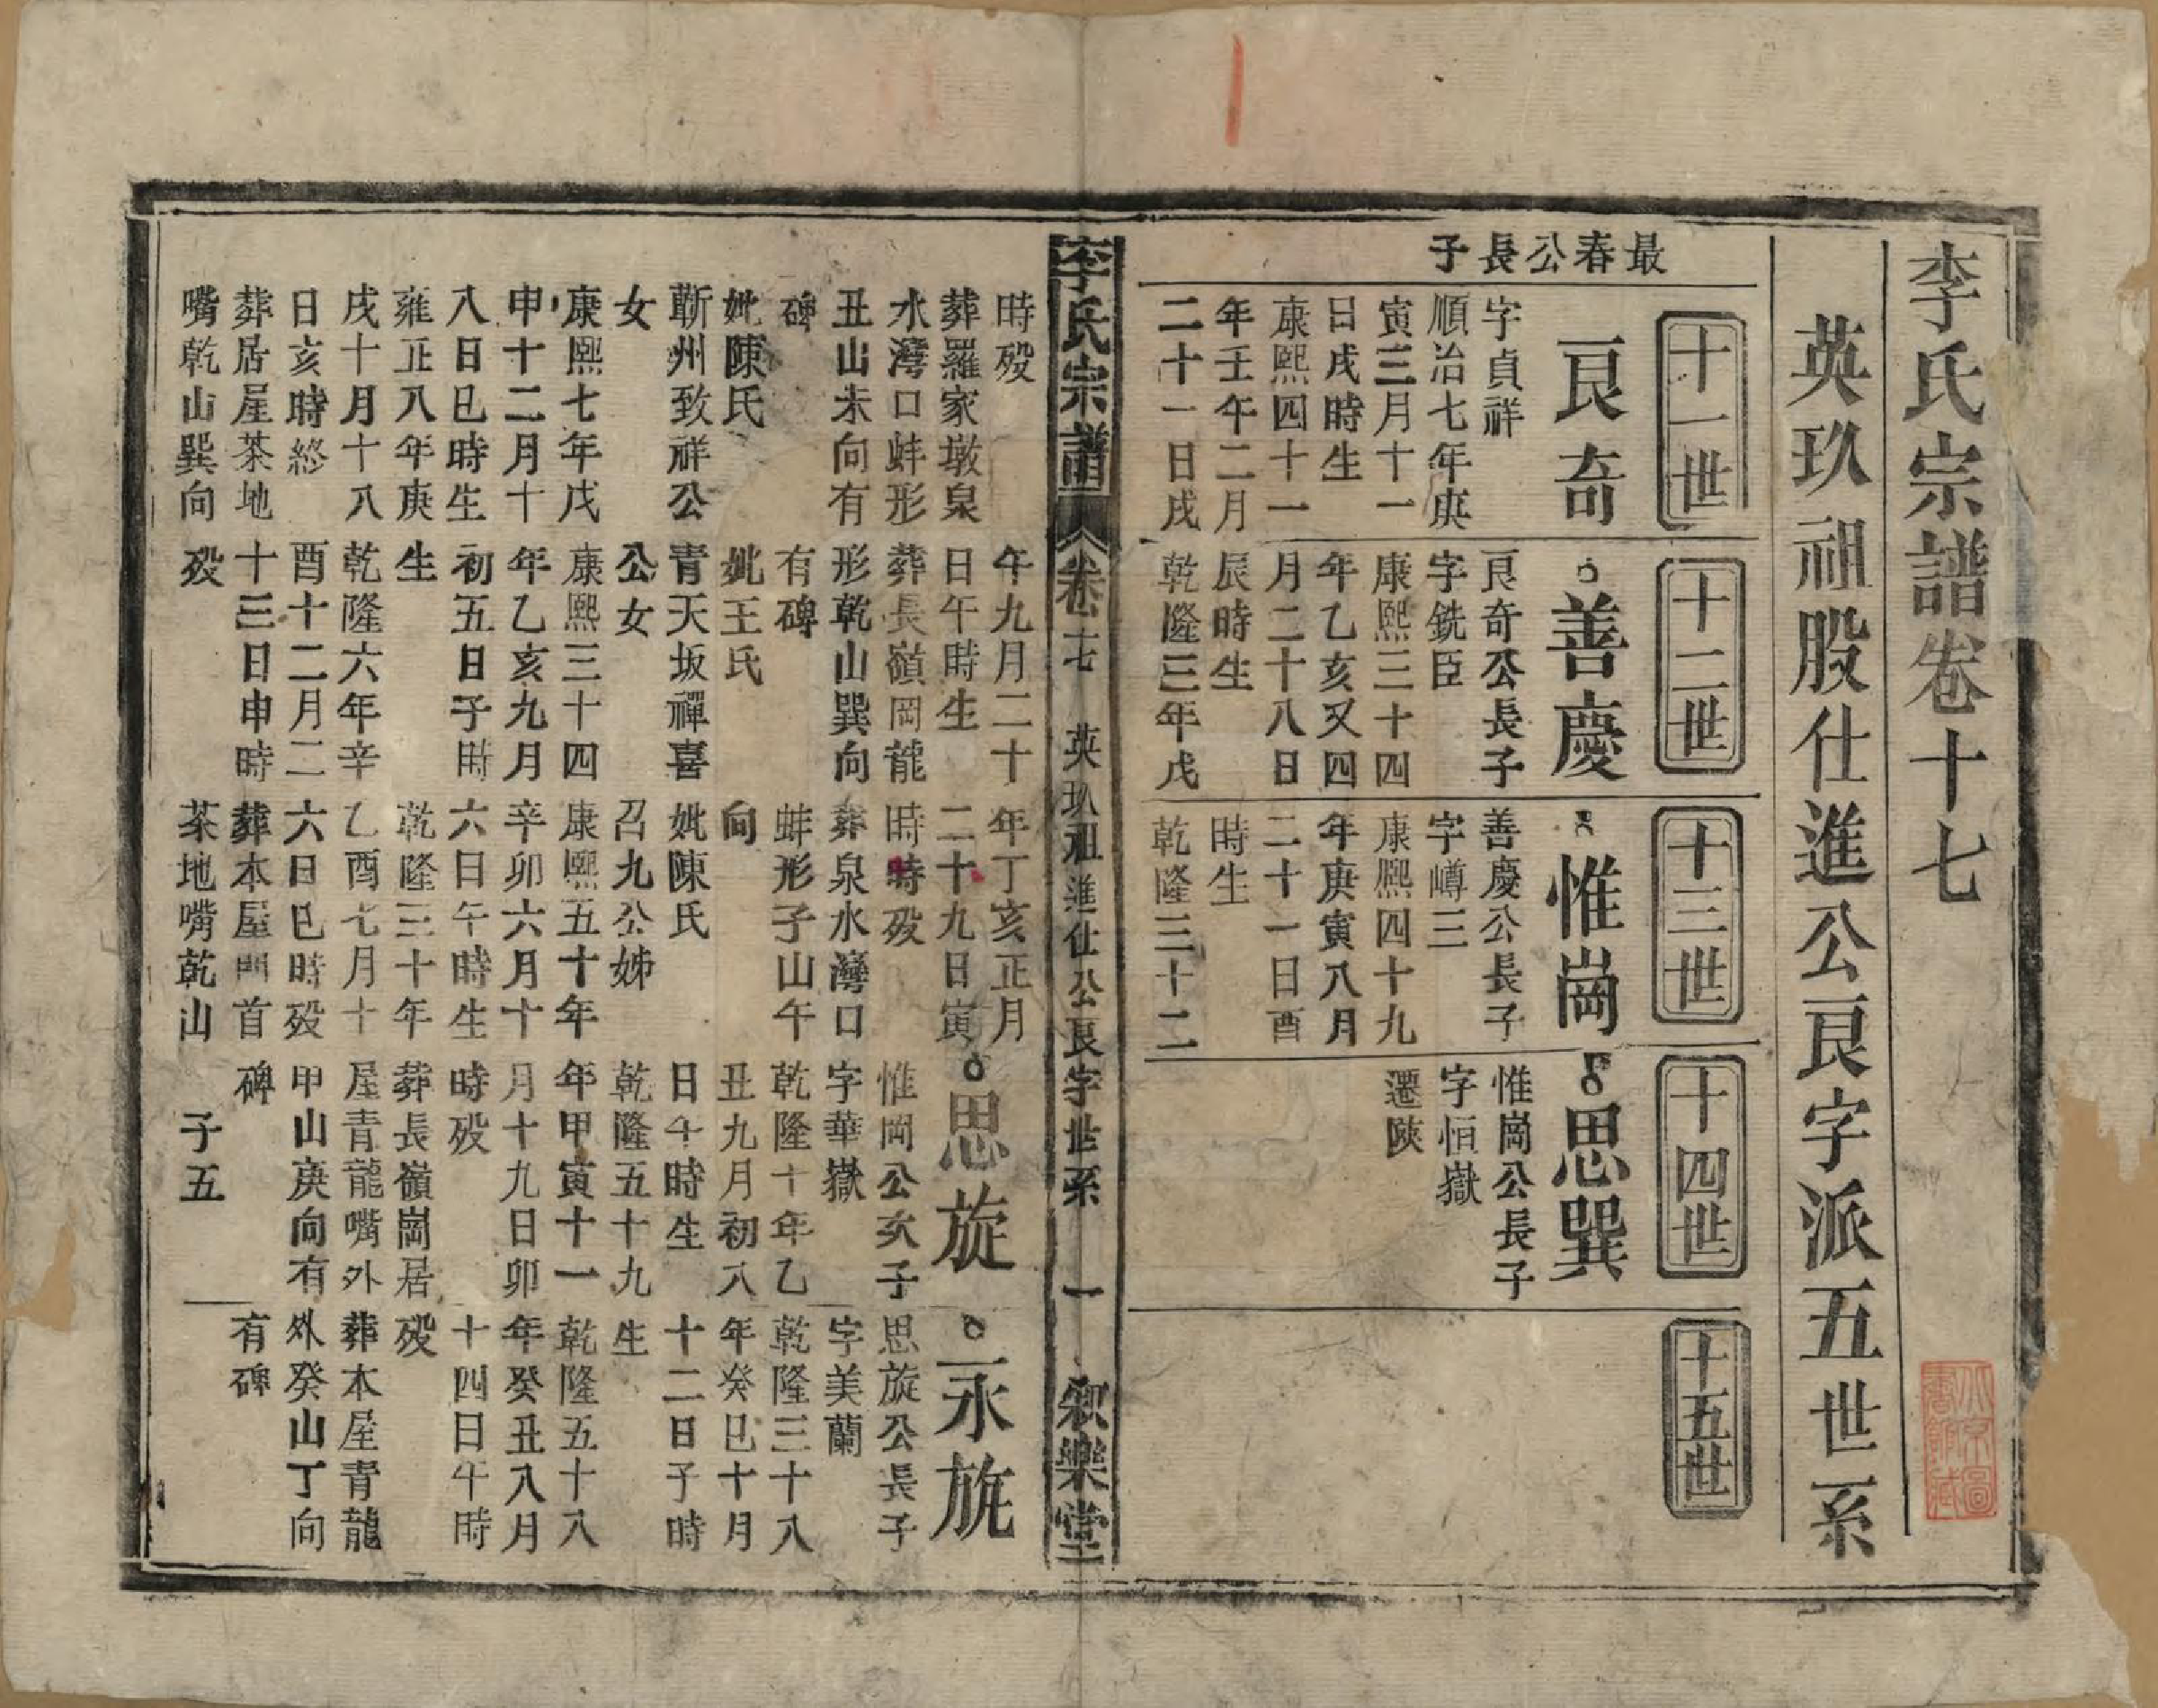 李氏宗譜卷十七
英玖祖股仕進公艮字派五世系
最春公長子
十一世
艮奇
字貞祥
順治七年庚
寅三月十一
日戌時生
康熙四十一
年壬午二月
二十一日戌
十二世
善慶
艮奇公長子
字銑臣
康熙三十四
年乙亥又四
月二十八日
辰時生
乾隆三年戊
十三世
惟崗
善慶公長子
字嶟三
康熙四十九
年庚寅八月
二十一日酉
時生
乾隆三十二
十四世
思巽
惟崗公長子
字恒嶽
遷陝
十五世
李氏宗譜
卷十七
英玖祖進仕公艮字世系
一
敘樂堂
時殁
葬羅家墩泉
水灣口蚌形
丑山未向有
碑
妣陳氏
蘄州致祥公
女
康熙七年戊
申十二月十
八日巳時生
雍正八年庚
戌十月十八
日亥時終
葬居屋茶地
嘴乾山巽向
午九月二十
日午時生
葬長嶺岡龍
形乾山巽向
有碑
妣王氏
青天坂禪喜
公女
康熙三十四
年乙亥九月
初五日子時
生
乾隆六年辛
酉十二月二
十三日申時
殁
年丁亥正月
二十九日寅
時時殁
葬泉水灣口
蚌形子山午
向
妣陳氏
召九公姊
康熙五十年
辛卯六月十
六日午時生
乾隆三十年
乙酉七月十
六日巳時殁
葬本屋門首
茶地嘴乾山
思旋
惟岡公次子
字華嶽
乾隆十年乙
丑九月初八
日午時生
乾隆五十九
年甲寅十一
月十九日卯
時殁
葬長嶺崗居
屋青龍嘴外
甲山庚向有
碑
子五
永旂
思旋公長子
字美蘭
乾隆三十八
年癸巳十月
十二日子時
生
乾隆五十八
年癸丑八月
十四日午時
殁
葬本屋青龍
外癸山丁向
有碑